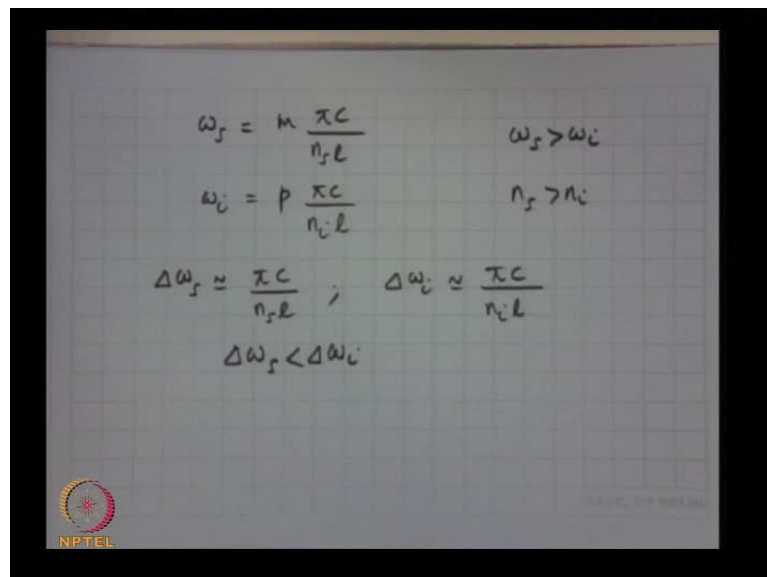 ω_s = m πc / n_s l    ω_s > ω_i
ω_i = p πc / n_i l    n_s > n_i
Δω_s ≃ πc / n_s l ; Δω_i ≃ πc / n_i l
Δω_s < Δω_i
NPTEL